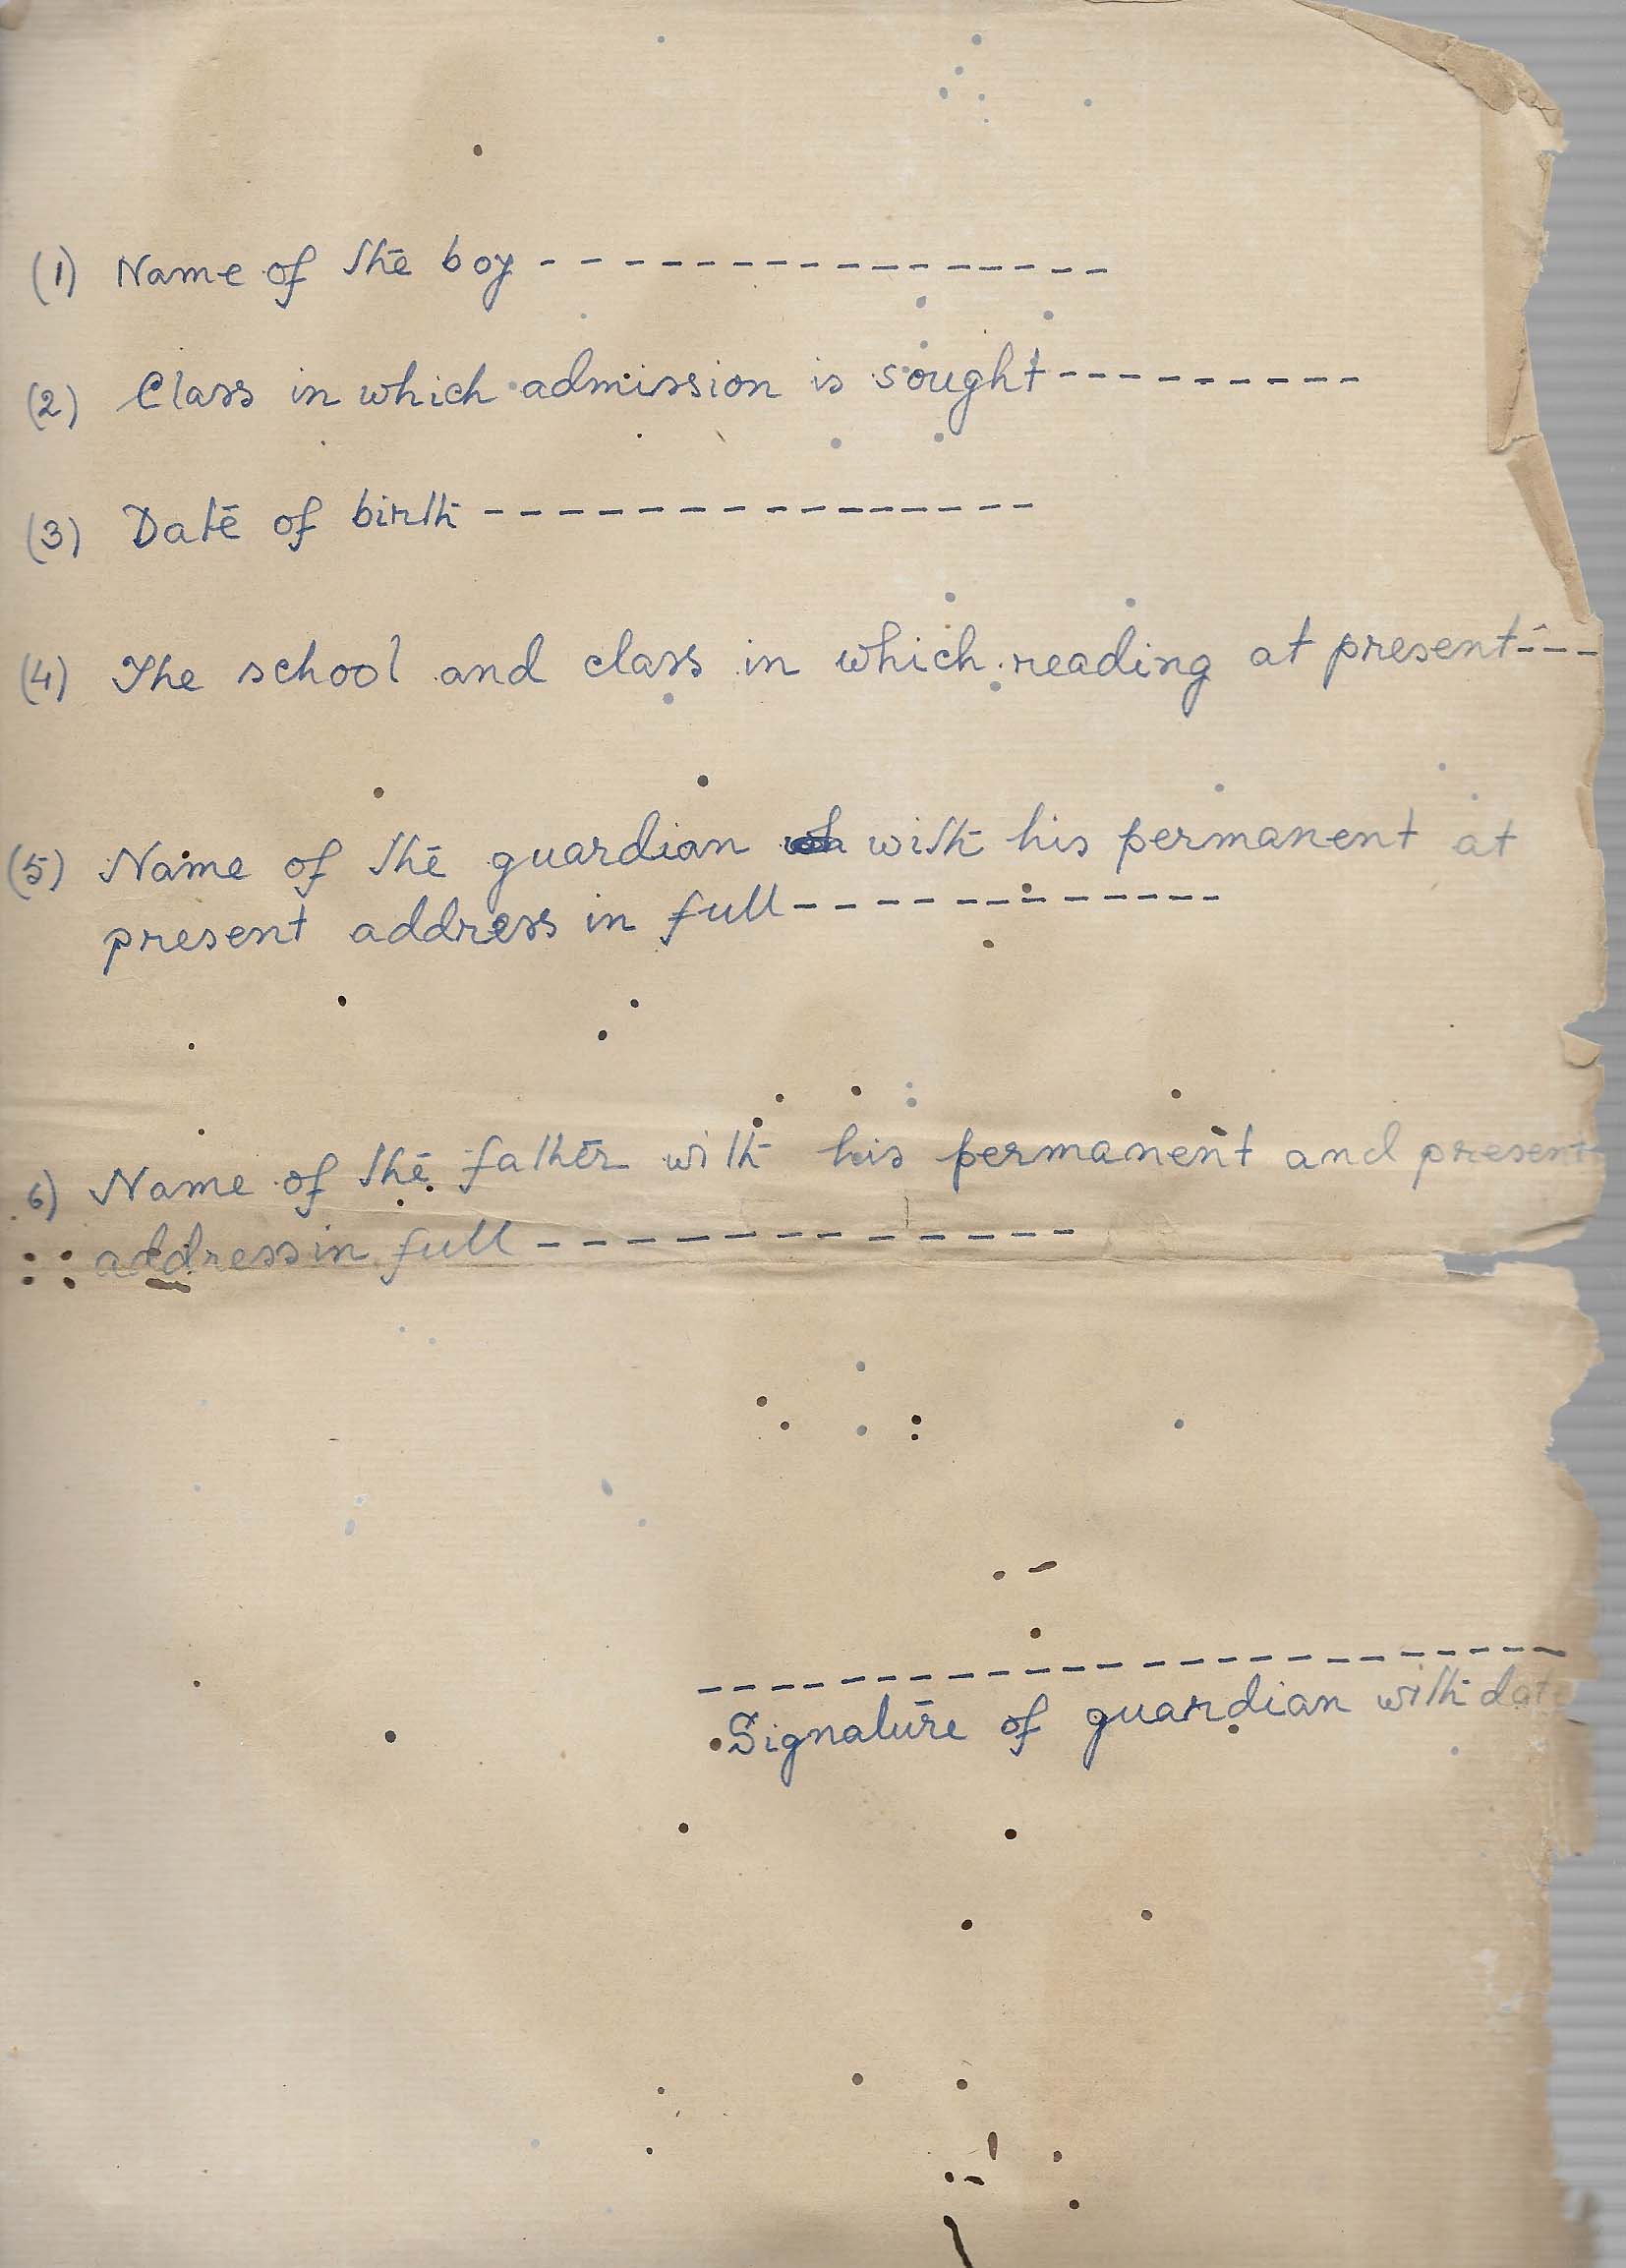 (1) Name of the boy - - - - - - - - - - - - - - - - - -
(2) Class in which admission is sought - - - - - - - - - -
(3) Date of birth - - - - - - - - - - - - - - - - -
(4) The school and class in which reading at present - - -
(5) Name of the guardian with his permanent at
present address in full - - - - - - - - - - - - -
6) Name of the father with his permanent and present
address in full - - - - - - - - - - - - - -
- - - - - - - - - - - - - - - - - - - - - - - -
Signature of guardian with date